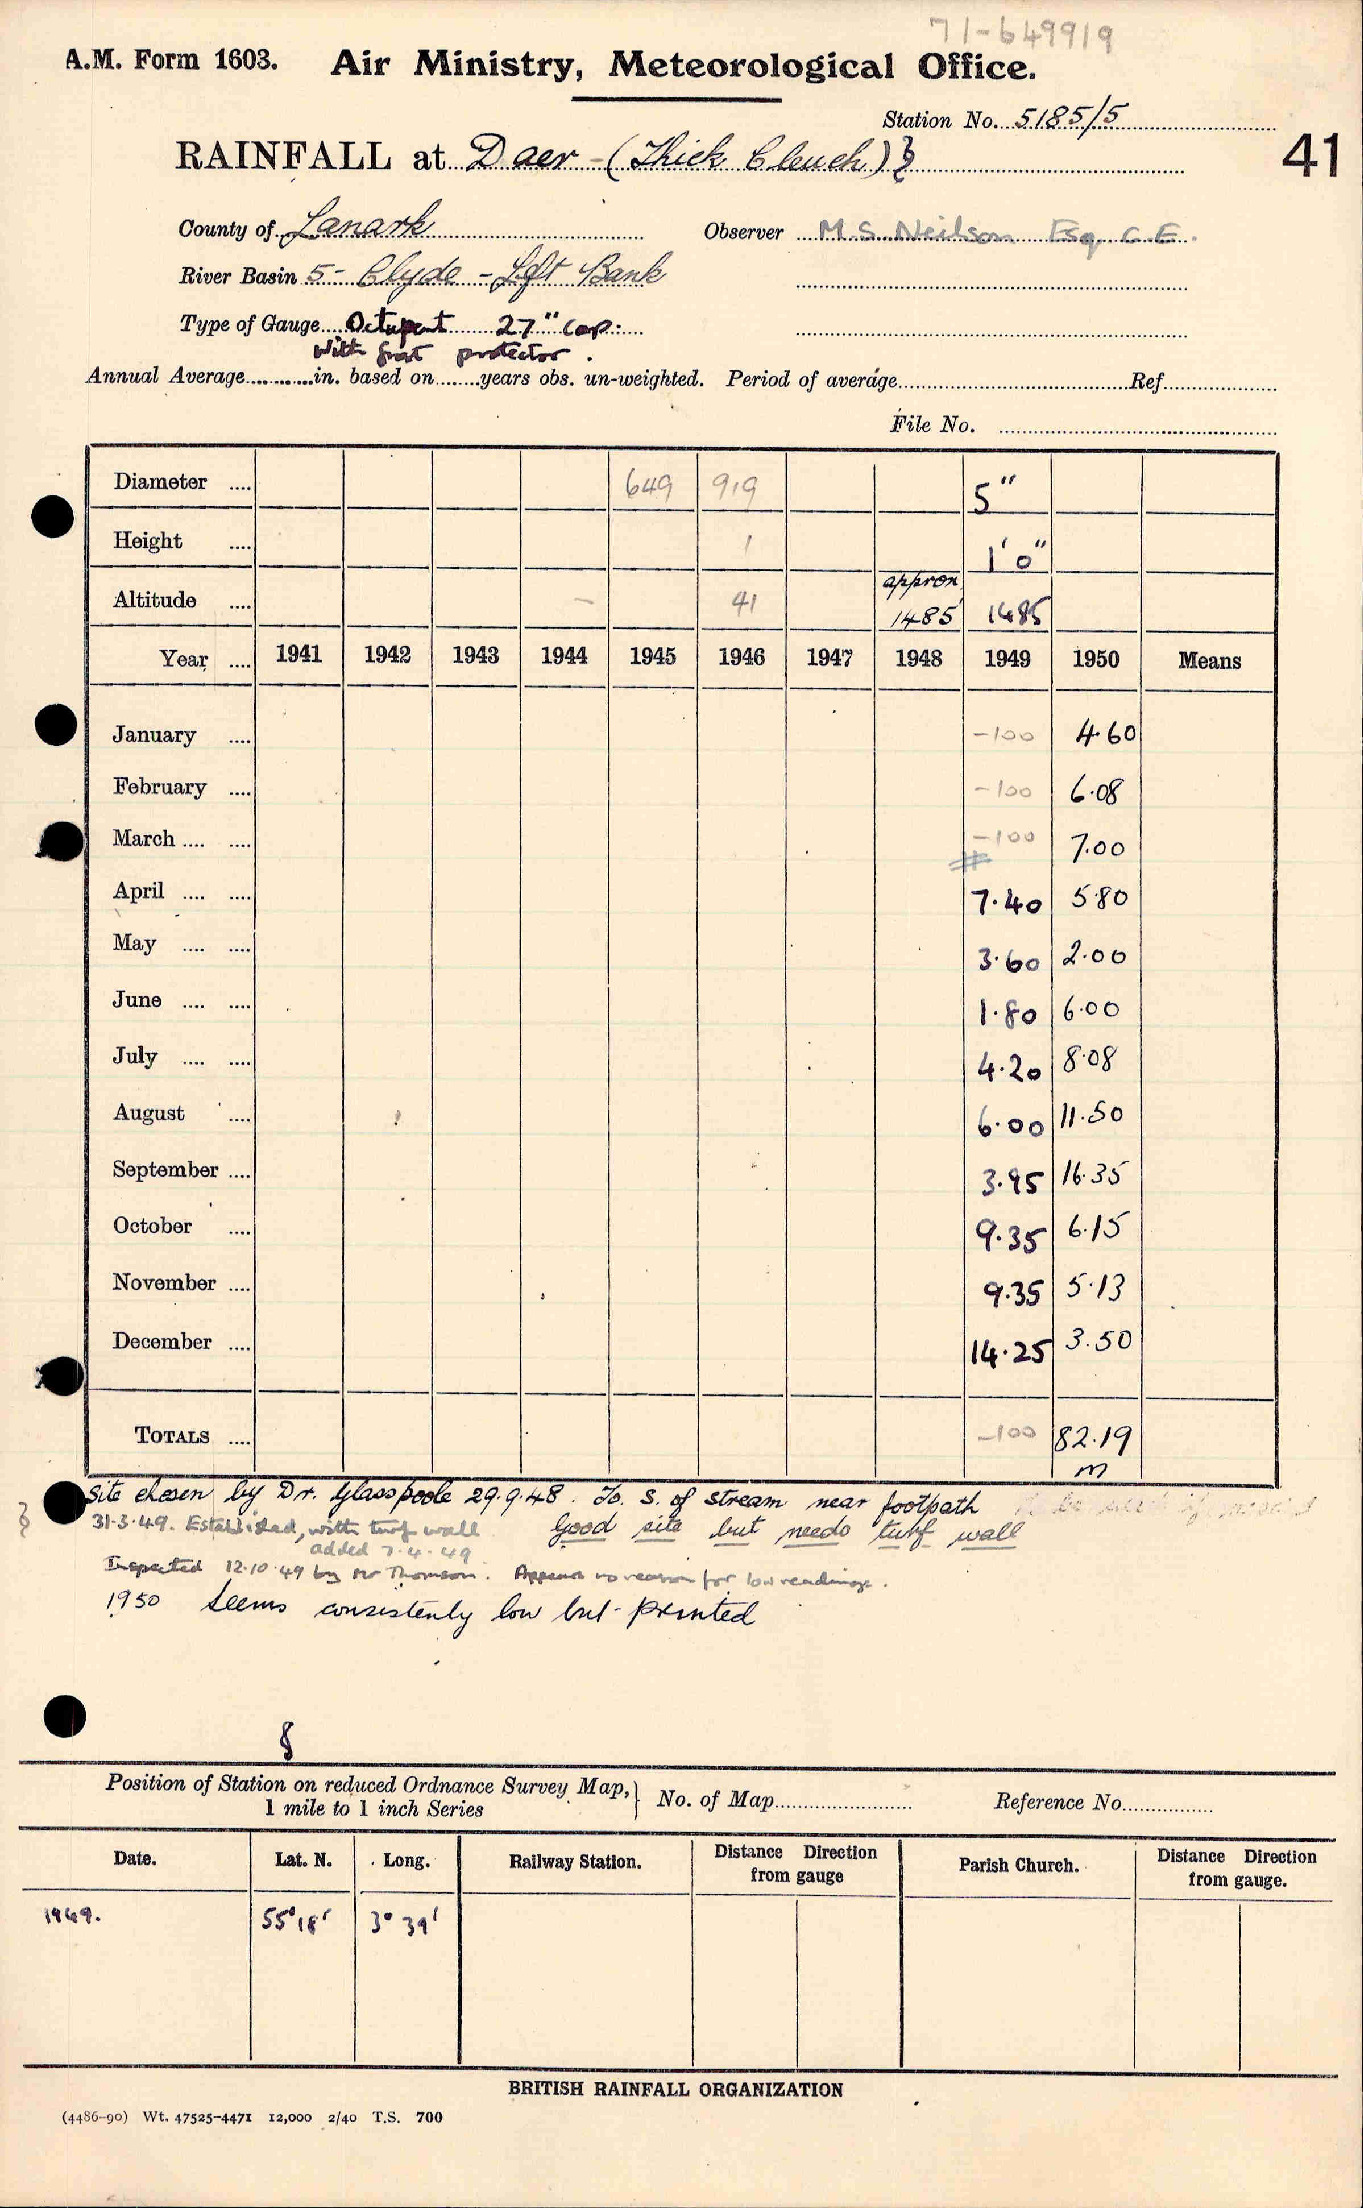 71-649919
A.M. Form 1603. Air Ministry, Meteorological Office.
Station No. 5185/5
RAINFALL at Daer - (Thick Cleuch) 41
County of Lanark Observer M.S. Neilson Esq. C.E.
River Basin 5 - Clyde - Left Bank
Type of Gauge Octapent 27" cap.
With frost protector.
Annual Average in. based on years obs. un-weighted. Period of average Ref.
File No.
Diameter .... 649 919 5"
Height .... 1 1'0"
Altitude .... - 41 approx 1485' 1485
Year .... 1941 1942 1943 1944 1945 1946 1947 1948 1949 1950 Means
January .... -100 4.60
February .... -100 6.08
March .... .... -100 7.00
April .... .... 7.40 5.80
May .... .... 3.60 2.00
June .... .... 1.80 6.00
July .... .... 4.20 8.08
August .... 6.00 11.50
September .... 3.95 16.35
October .... 9.35 6.15
November .... 9.35 5.13
December .... 14.25 3.50
TOTALS .... -100 82.19
m
Site chosen by Dr. Glasspoole 29.9.48. To S. of stream near footpath
31.3.49. Established, with turf wall Good site but needs turf wall
added 7.4.49
Inspected 12.10.49 by Mr Thomson. Appears no reason for low readings.
1950 Seems consistently low but printed
8
Position of Station on reduced Ordnance Survey Map, 1 mile to 1 inch Series No. of Map Reference No.
Date. Lat. N. Long. Railway Station. Distance Direction from gauge Parish Church. Distance Direction from gauge.
1949. 55°18' 3° 39'
BRITISH RAINFALL ORGANIZATION
(4486-90) Wt. 47525-4471 12,000 2/40 T.S. 700